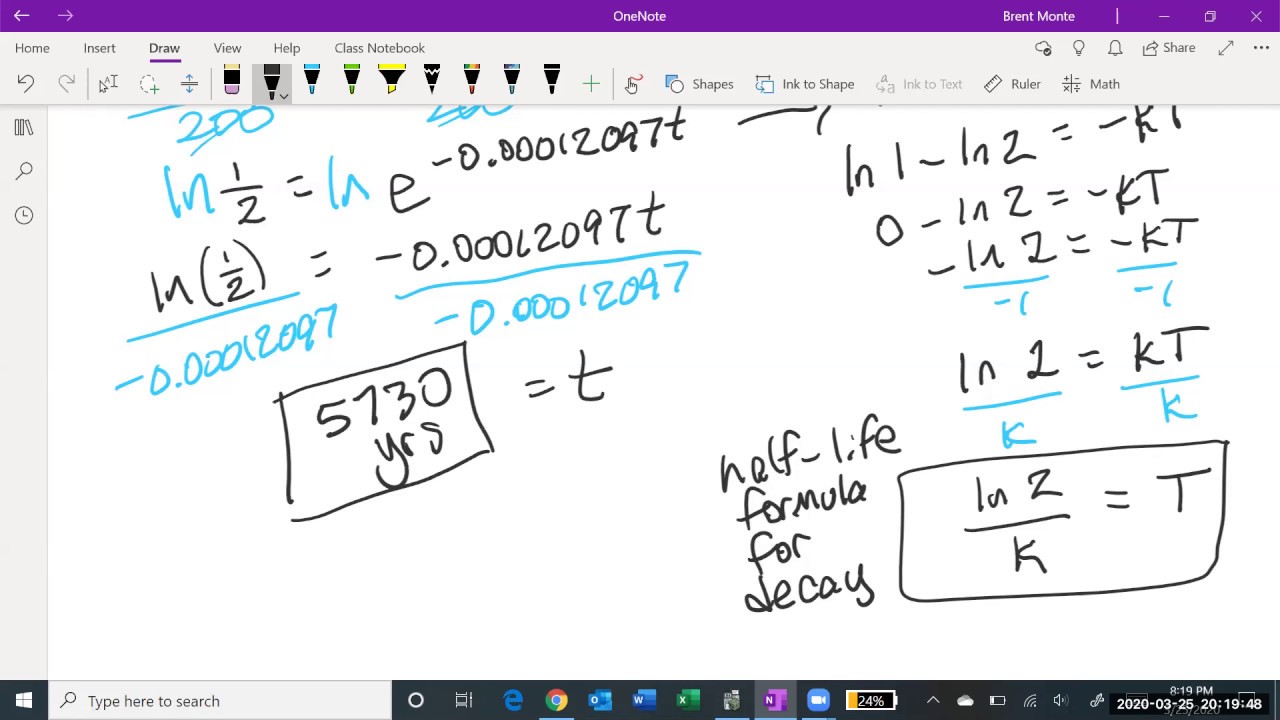 OneNote
Brent Monte
Home Insert Draw View Help Class Notebook
Share
Shapes Ink to Shape Ink to Text Ruler Math
200
ln 1/2 = ln e^-0.00012097t
ln(1/2) = -0.00012097t
-0.00012097 -0.00012097
5730 yrs = t
ln 1 - ln 2 = -kT
0 - ln 2 = -kT
-ln 2 = -kT
-1 -1
ln 2 = kT
k k
half-life
formula
for
decay
ln 2 / k = T
Type here to search
24%
8:19 PM
2020-03-25 20:19:48